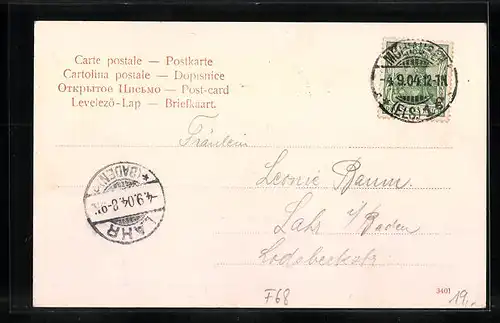 Carte postale — Postkarte
Cartolina postale — Dopisnice
Открытое Письмо — Post-card
Levelező-Lap — Briefkaart.
MÜLHAUSEN
4.9.04.12-1N.
* (ELS) 1 *
Fräulein
Leonie Baum.
Lahr i/Baden
LAHR
4.9.04.8-9N.
* (BADEN)
F68
3401
19,-